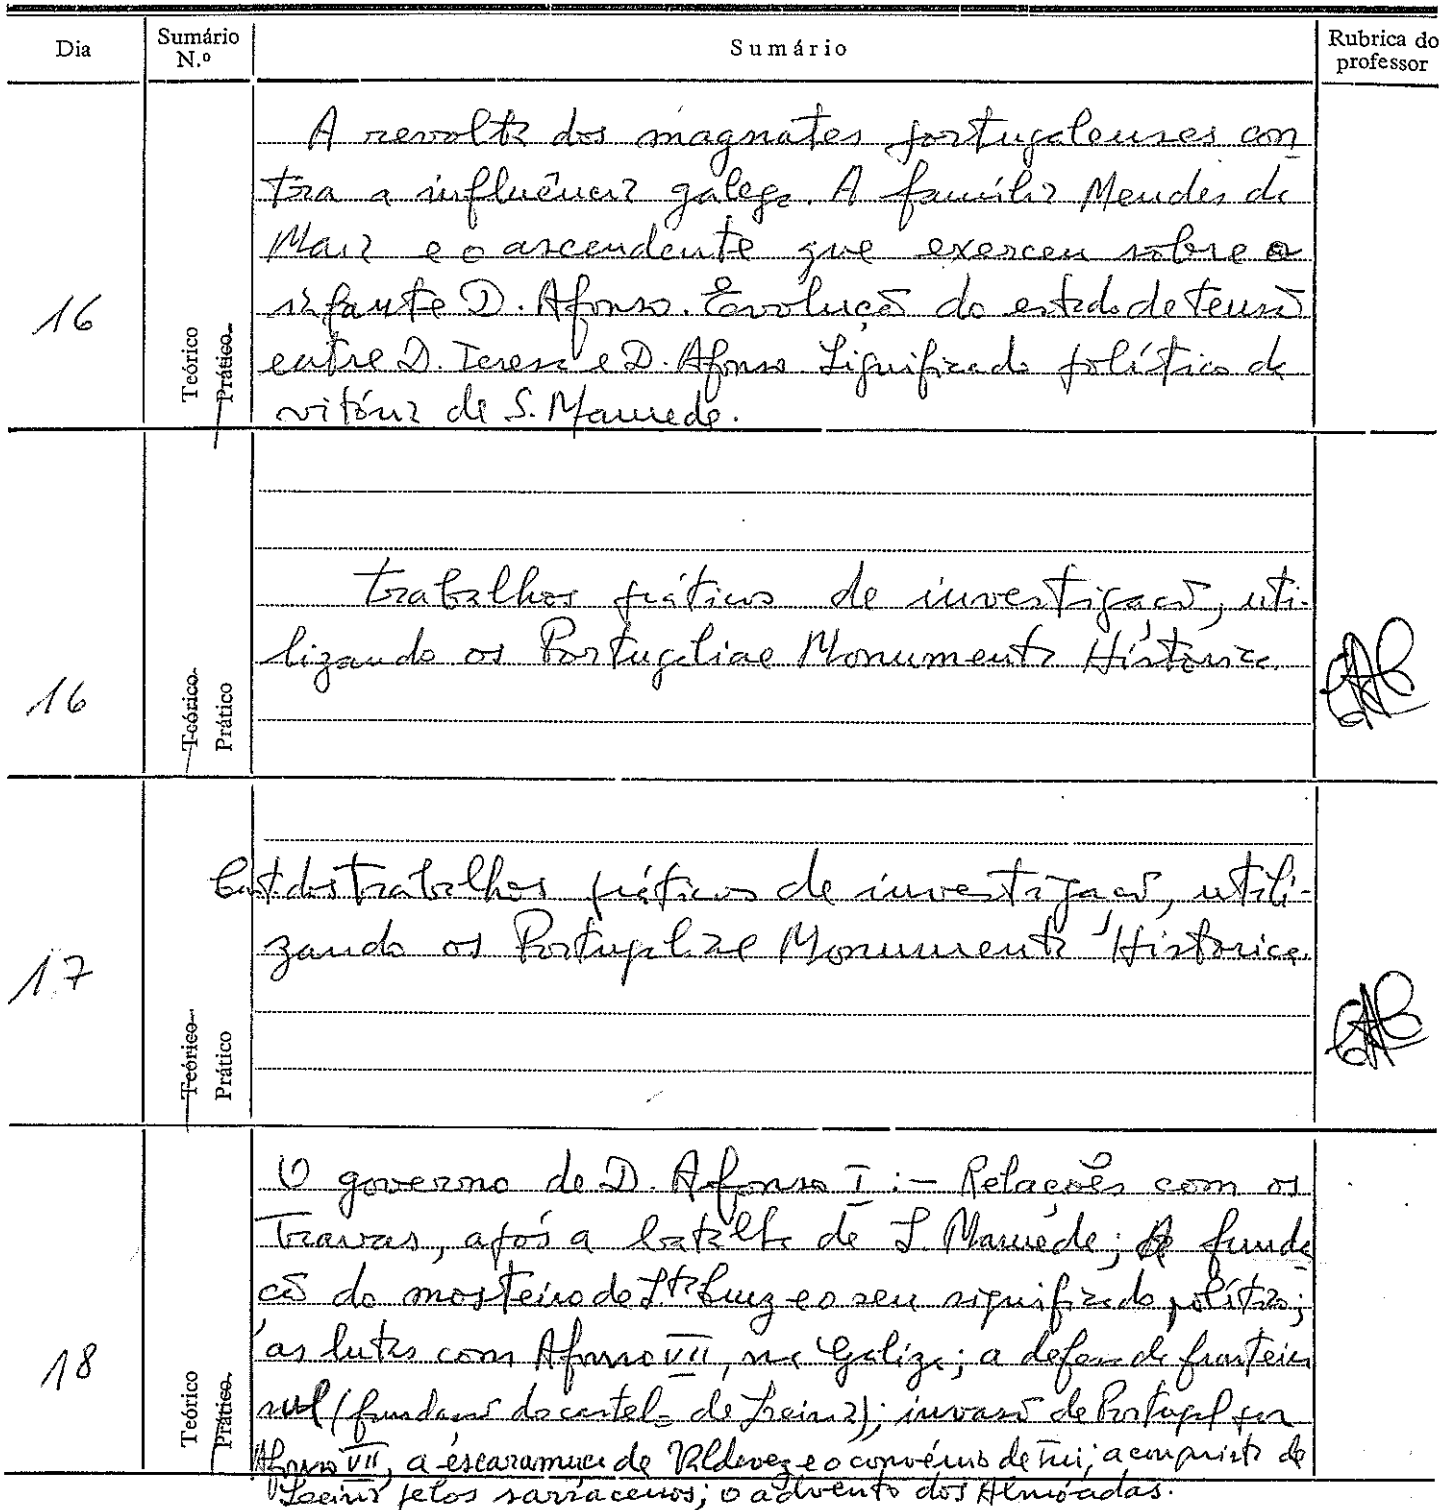 Dia
Sumário N.º
Sumário
Rubrica do professor
16
Teórico
Prático
A revolta dos magnates portugalenses con
tra a influência galega. A família Mendes da
Maia e o ascendente que exerceu sôbre o
infante D. Afonso. Evolução do estado de tensão
entre D. Teresa e D. Afonso. Significado político da
vitória de S. Mamede.
16
Teórico
Prático
Trabalhos práticos de investigação, uti-
lizando os Portugaliae Monumenta Historica.
17
Teórico
Prático
Cont. dos trabalhos práticos de investigação, utili-
zando os Portugaliae Monumenta Historica.
18
Teórico
Prático
O governo de D. Afonso I: – Relações com os
Travas, após a batalha de S. Mamede; A funda
ção do mosteiro de S.ta Cruz e o seu significado político;
as lutas com Afonso VII, na Galiza; a defesa da fronteira
sul (fundação do castelo de Leiria); invasão de Portugal por
Afonso VII, a escaramuça de Valdevez e o convénio de Tui; a conquista de
Leiria pelos sarracenos; o advento dos Almóadas.